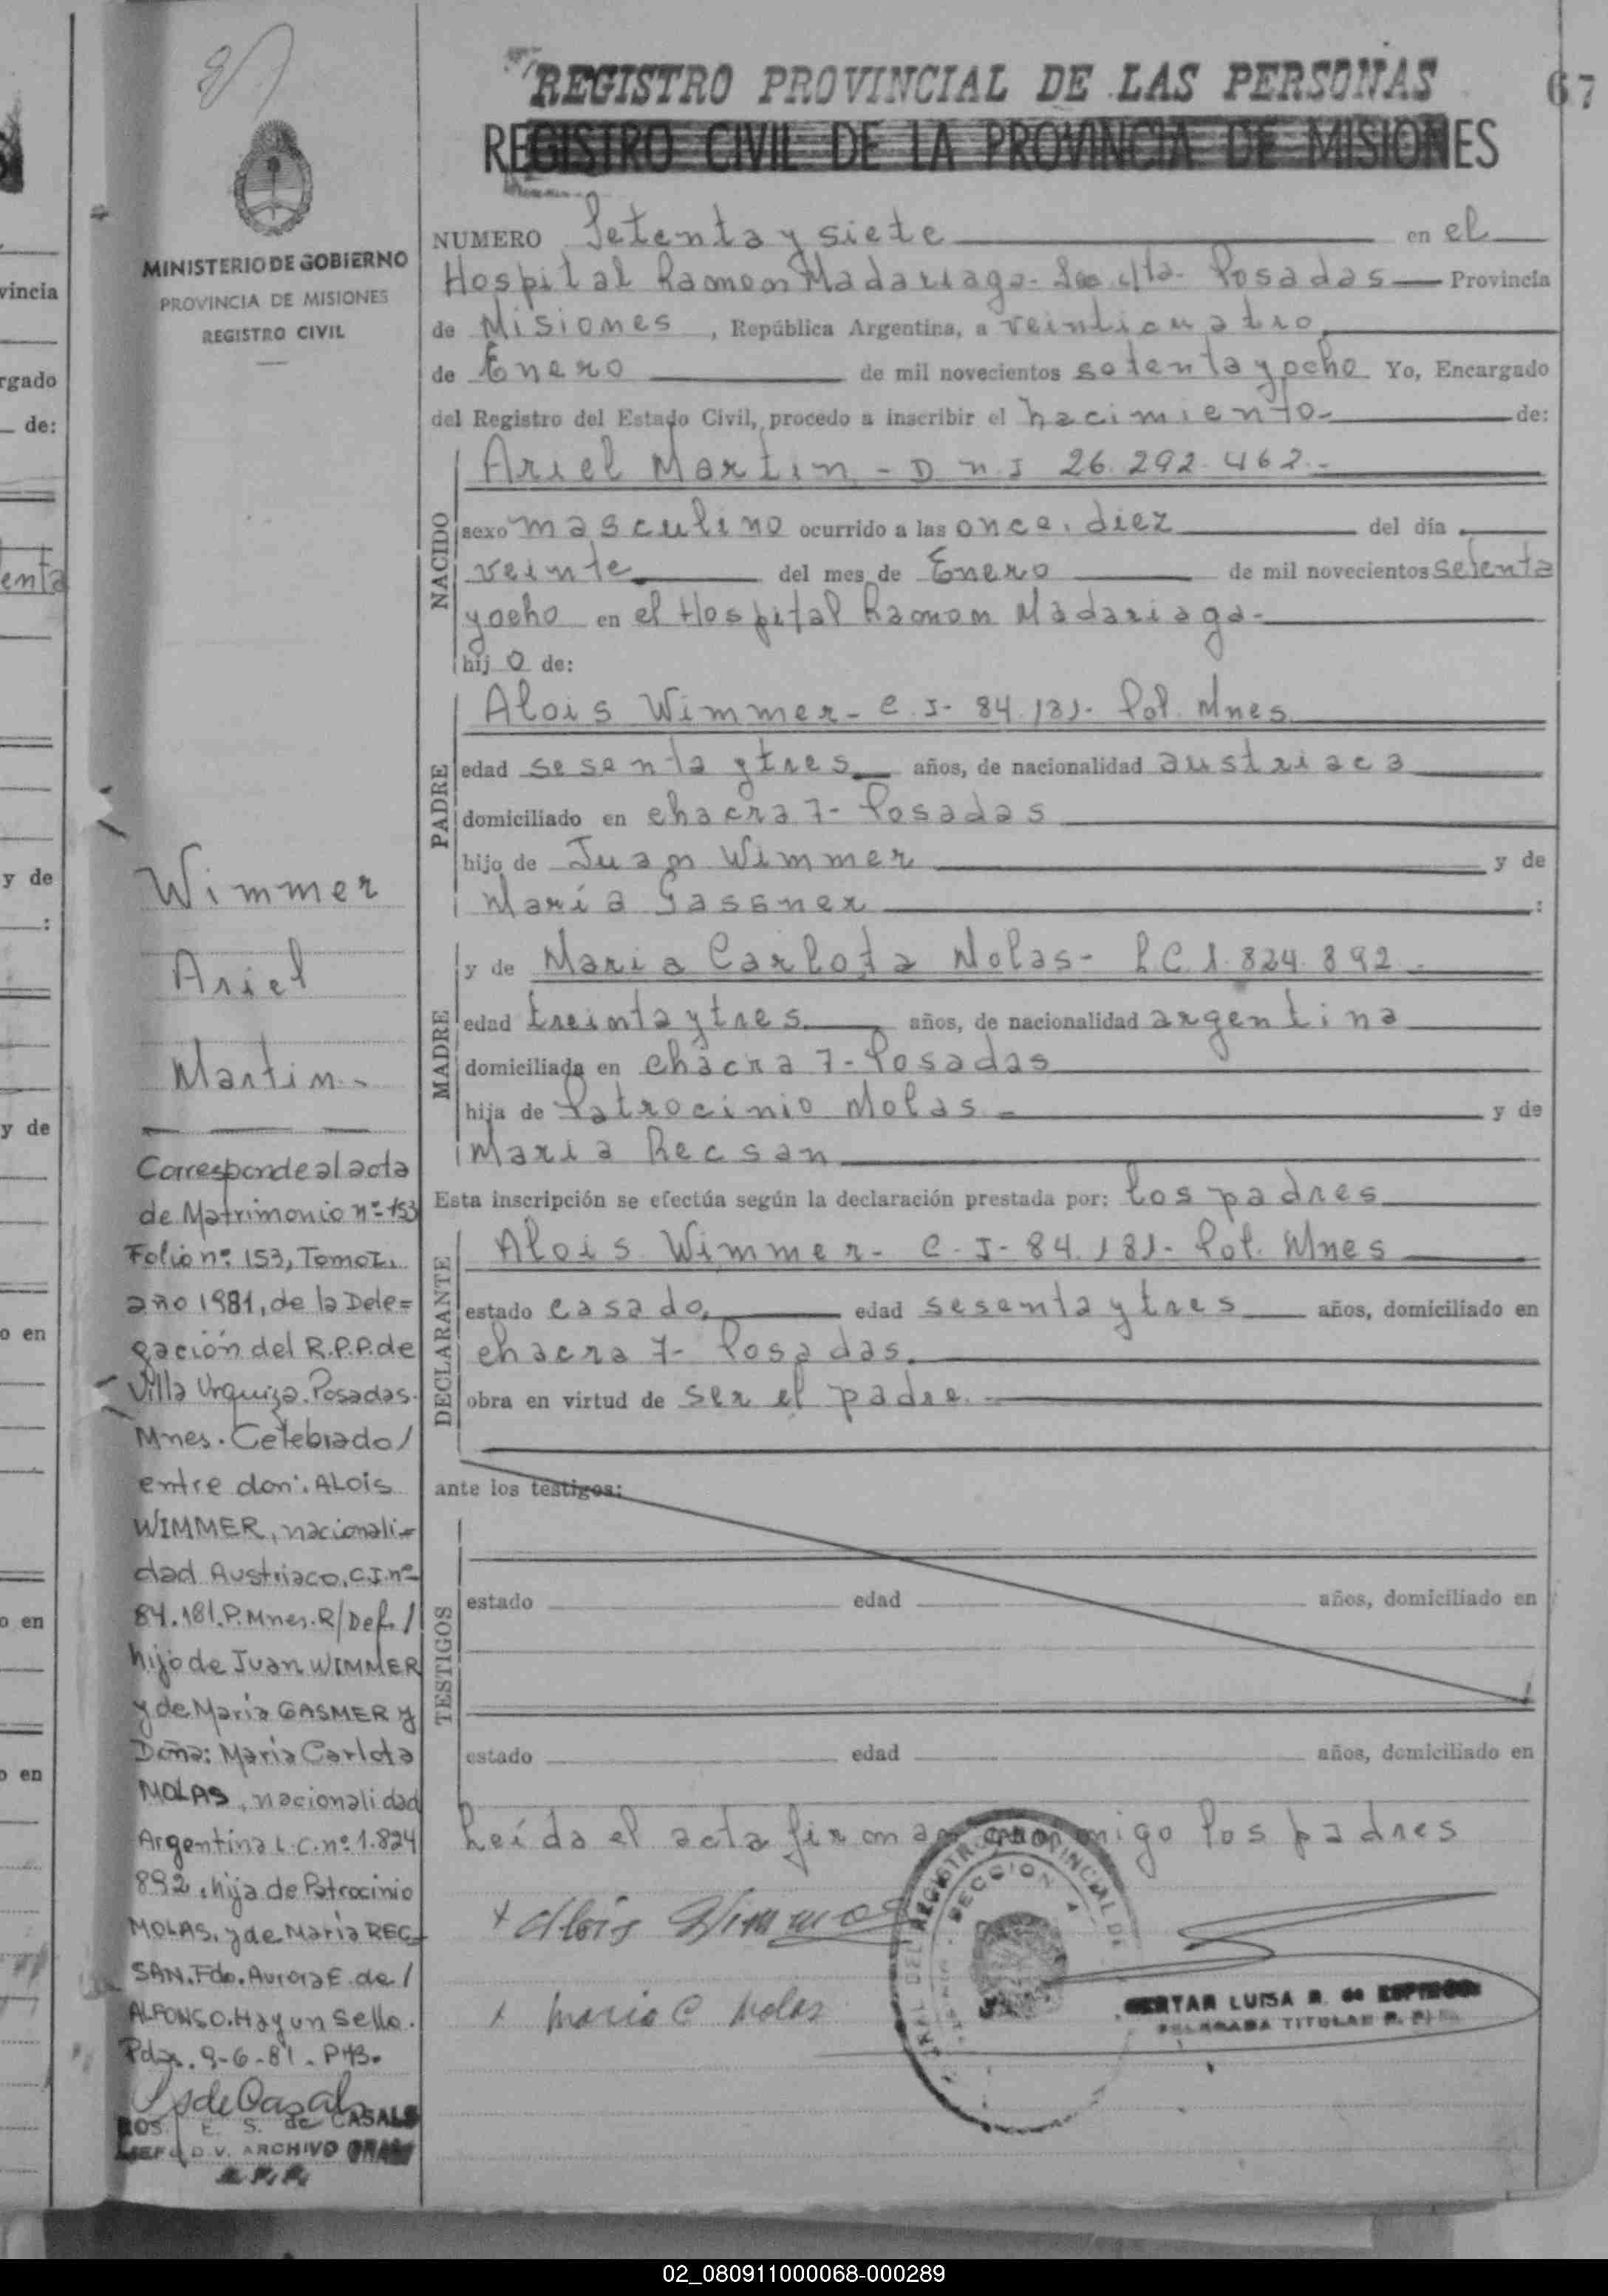 REGISTRO PROVINCIAL DE LAS PERSONAS
67
REGISTRO CIVIL DE LA PROVINCIA DE MISIONES
MINISTERIO DE GOBIERNO
PROVINCIA DE MISIONES
REGISTRO CIVIL
NUMERO Setenta y siete en el
Hospital Ramon Madariaga - Posadas Provincia
de Misiones, República Argentina, a veinticuatro
de Enero de mil novecientos setenta y ocho Yo, Encargado
del Registro del Estado Civil, procedo a inscribir el nacimiento- de:
NACIDO
Ariel Martin - D n I 26.292.462.-
sexo masculino ocurrido a las once. diez del día
veinte del mes de Enero de mil novecientos setenta
y ocho en el Hospital Ramon Madariaga-
hij o de:
PADRE
Alois Wimmer - C. I - 84.181- Pol. Mnes
edad sesenta y tres años, de nacionalidad austriaca
domiciliado en chacra 7- Posadas
hijo de Juan Wimmer y de
María Gassner :
MADRE
y de Maria Carlota Molas - L C 1.824.892.
edad treinta y tres años, de nacionalidad argentina
domiciliada en chacra 7- Posadas
hija de Patrocinio Molas - y de
Maria Recsan
Esta inscripción se efectúa según la declaración prestada por: los padres
DECLARANTE
Alois Wimmer - C. I - 84.181- Pol. Mnes
estado casado, edad sesenta y tres años, domiciliado en
chacra 7- Posadas.
obra en virtud de ser el padre. -
ante los testigos:
TESTIGOS
estado edad años, domiciliado en
estado edad años, domiciliado en
Leída el acta firman conmigo los padres
x Alois Wimmer
x Maria C Molas
SECCION 4
GERTAR LUISA R. de
DELEGADA TITULAR R. P.
Wimmer
Ariel
Martin -
Corresponde al acta
de Matrimonio nº 153
Folio nº 153, Tomo I,
año 1981, de la Dele=
gación del R.P.P. de
Villa Urquiza. Posadas.
Mnes. Celebrado/
entre don: ALOIS
WIMMER, nacionali=
dad Austriaco, C.I. nº
84.181. P. Mnes. R/Def. /
hijo de Juan WIMMER
y de María GASMER y
Doña: María Carlota
MOLAS, nacionalidad
Argentina L.C. nº 1.824
892, hija de Patrocinio
MOLAS, y de María REC=
SAN. Fdo. Aurora E. de /
ALFONSO. Hay un sello.
Pdas. 9-6-81.
ROS. E. S. de CASALS
JEFE DIV. ARCHIVO GRAL
vincia
rgado
de:
enta
y de
:
y de
o en
o en
o en
02_080911000068-000289